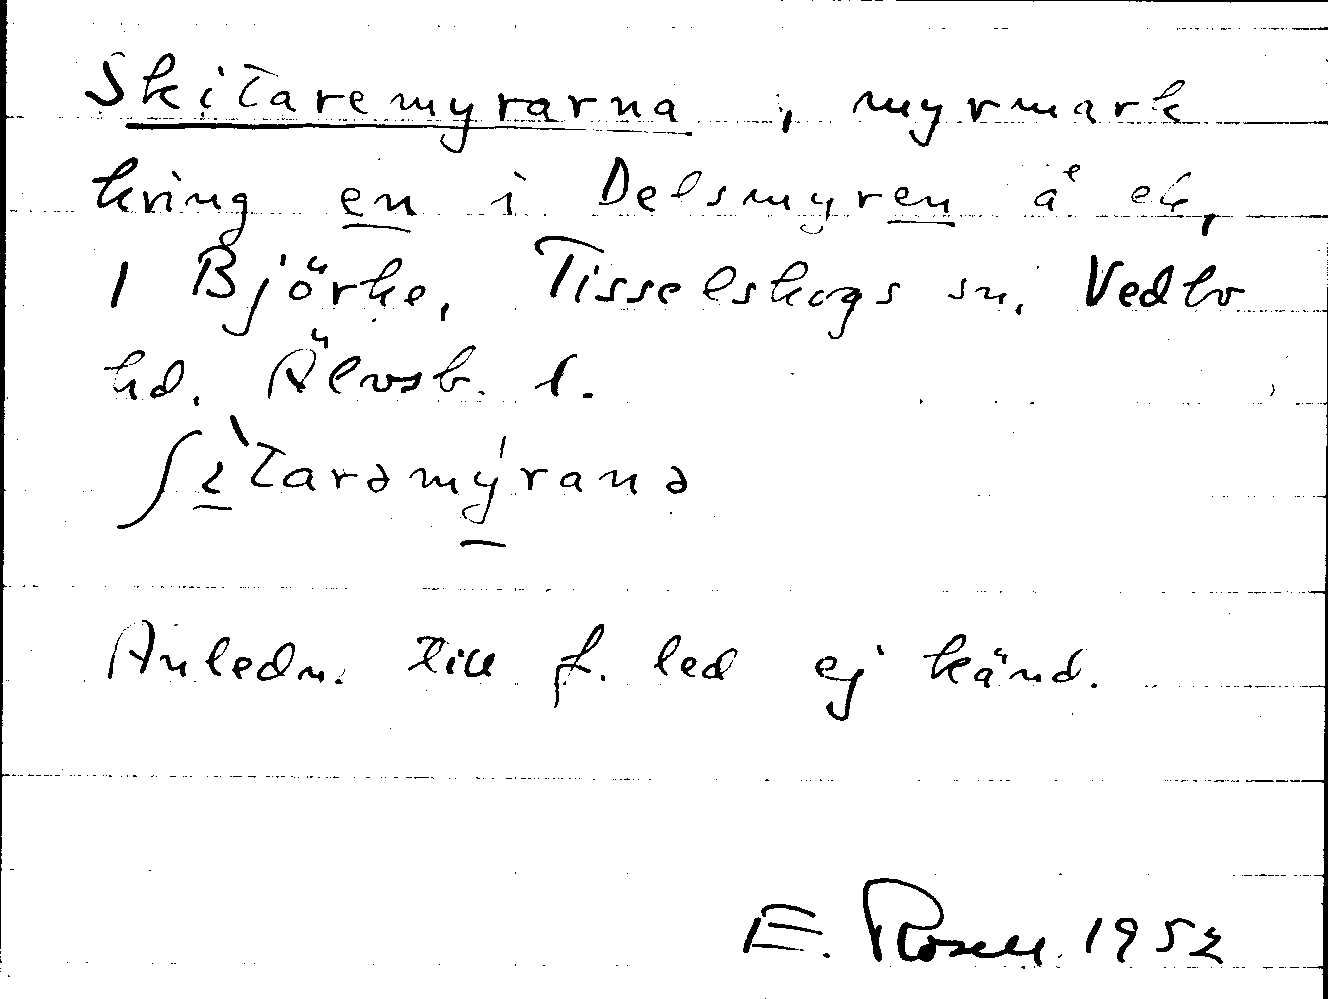 Skitaremyrarna, myrmark
kring en i Delsmyren å ek,
1 Björke, Tisselskogs sn, Vedbo
hd. Älvsb. l.
ʃi̱`tarəmý̱ranə
Anledn. till f. led ej känd.
E. Rosell 1952